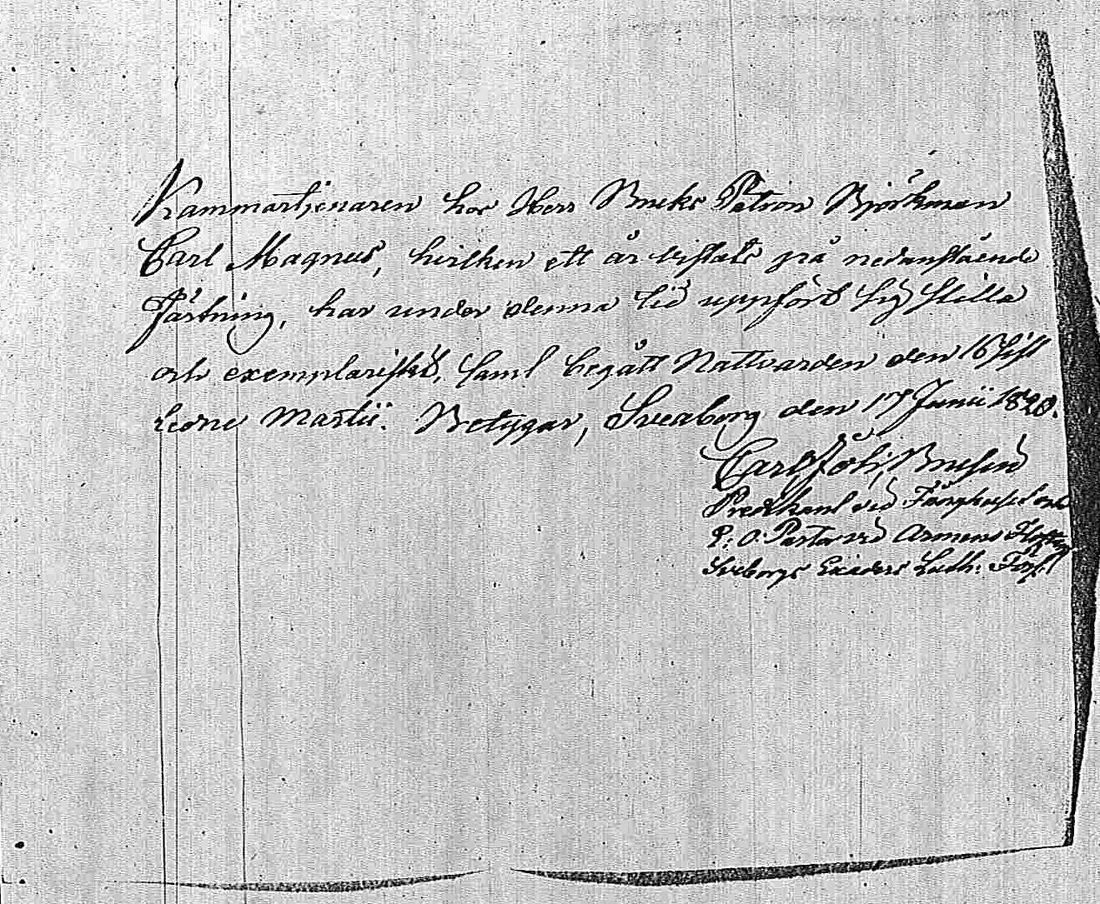 Kammartjenaren hos Herr Bruks Patron Björkman
Carl Magnus, hvilken ett år vistats på nedanstående
Fästning, har under denna tid uppfört sig stilla
och exemplariskt, samt begått Nattvarden den 16 sist
ledne Martii. Betygar, Sveaborg den 17 Junii 1820.
Carl
Predikant vid Fånghuset och
P: O: Pastor vid Armens
Sveborgs Luth: Förs: